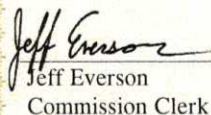 Jeff Everson
Jeff Everson
Commission Clerk